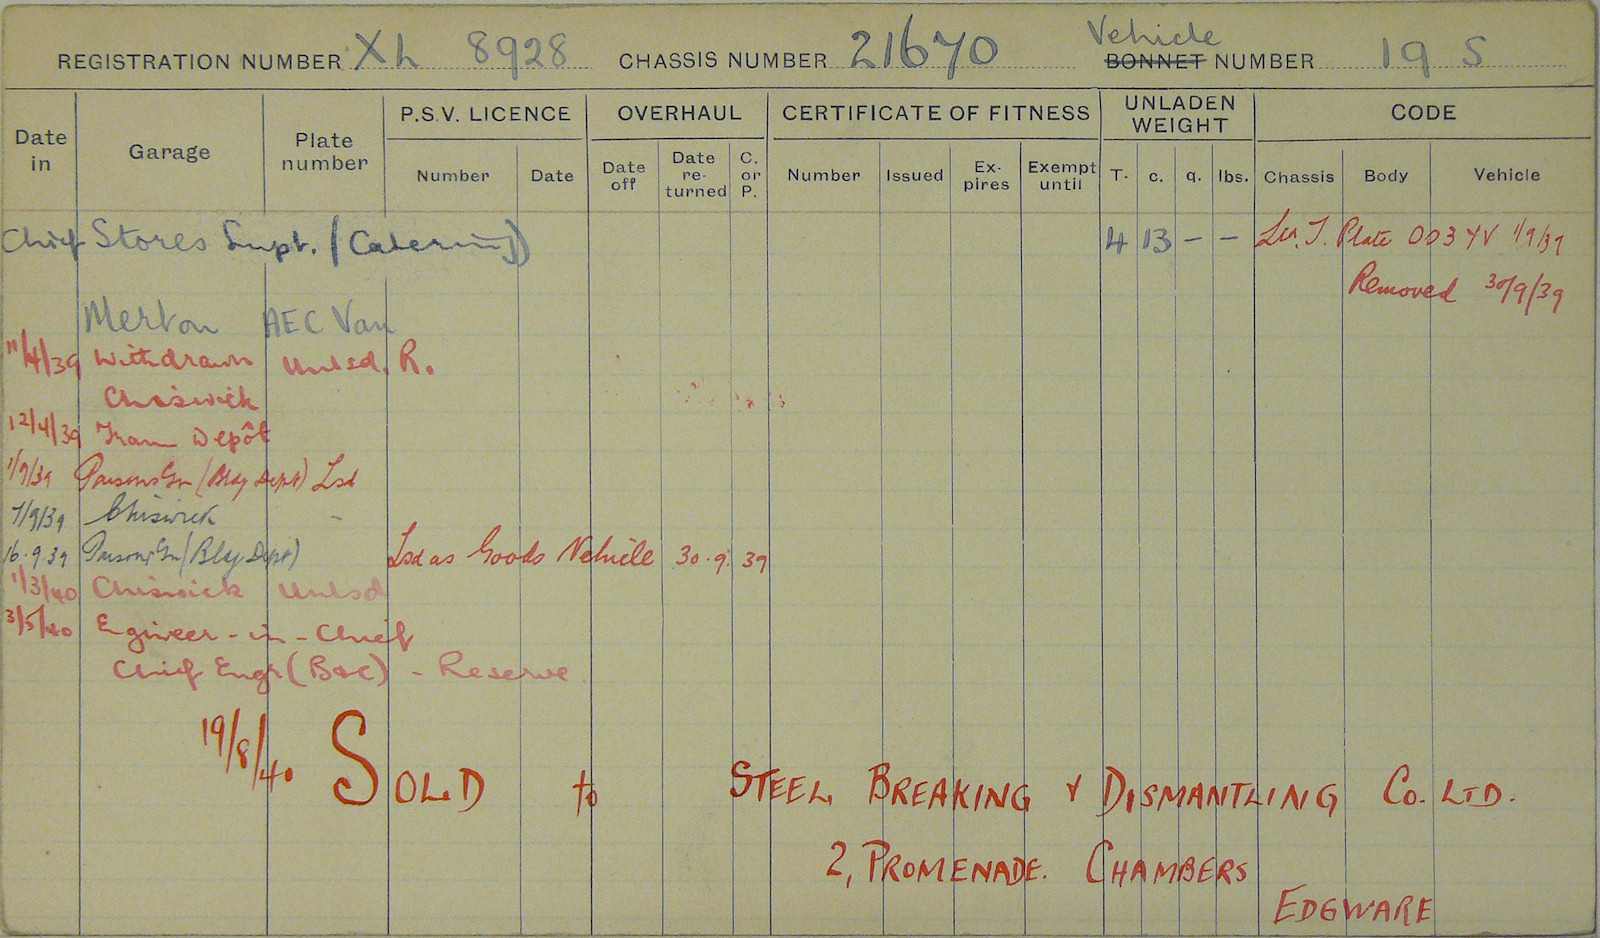 REGISTRATION NUMBER XL 8928 CHASSIS NUMBER 21670 Vehicle BONNET NUMBER 19 S
Date in Garage Plate number P.S.V. LICENCE OVERHAUL CERTIFICATE OF FITNESS UNLADEN WEIGHT CODE
Number Date Date off Date re-turned C. or P. Number Issued Ex-pires Exempt until T. c. q. lbs. Chassis Body Vehicle
Chief Stores Supt. (Catering) 4 13 - - T. Plate 003 YV 1/9/39
Removed 30/9/39
Merton AEC Van
11/4/39 Withdrawn Unlsd. R.
Chiswick
12/4/39 Tram Depôt
1/9/39 Parsons Gn (Bldg Dept) Lsd
7/9/39 Chiswick -
16.9.39 Parsons Gn (Bldg Dept) Lsd as Goods Vehicle 30.9.39
1/3/40 Chiswick Unlsd
3/5/40 Egineer-in-Chief
Chief Engr (B&C) - Reserve
19/8/40 SOLD to STEEL BREAKING & DISMANTLING Co. LTD.
2, PROMENADE. CHAMBERS
EDGWARE